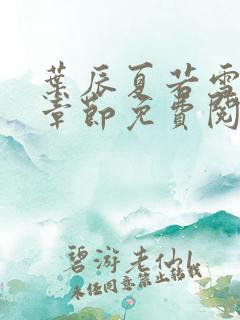 葉辰夏若雪
章節免費閱
碧游老仙
未经同意禁止转载